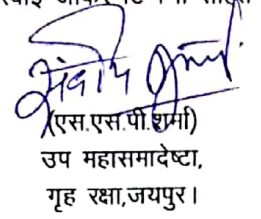 (एस.एस.पी.शर्मा)
उप महासमादेष्टा,
गृह रक्षा,जयपुर।